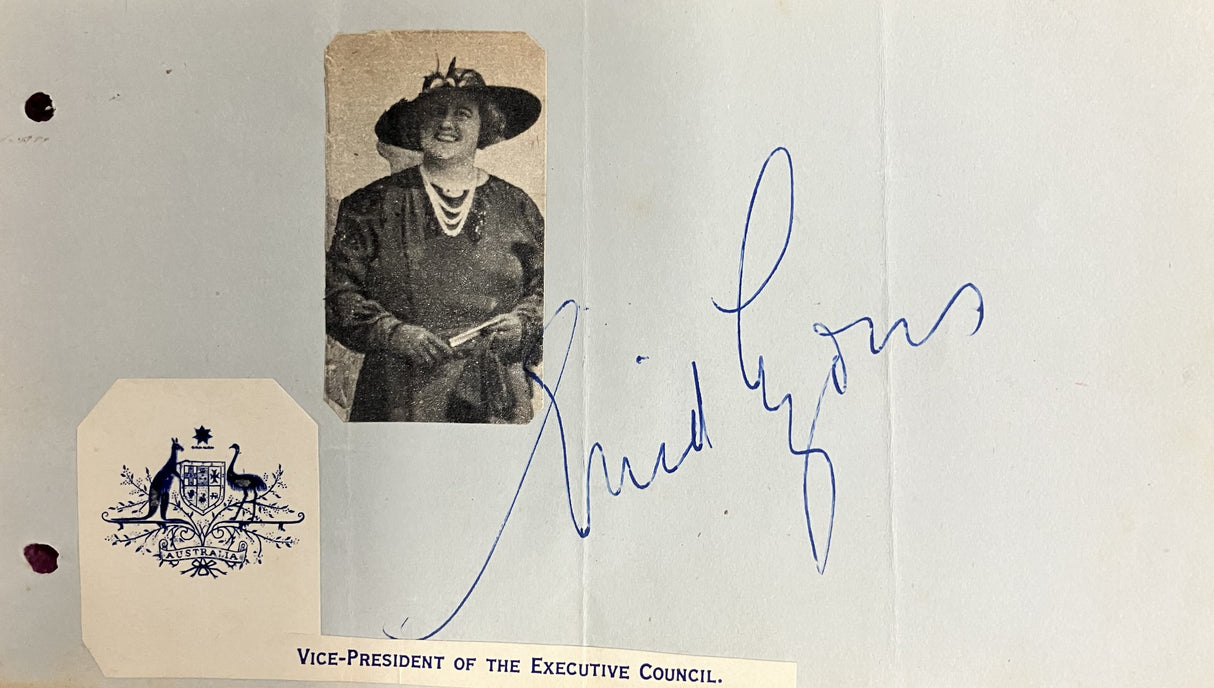 Enid Lyons
AUSTRALIA
VICE-PRESIDENT OF THE EXECUTIVE COUNCIL.